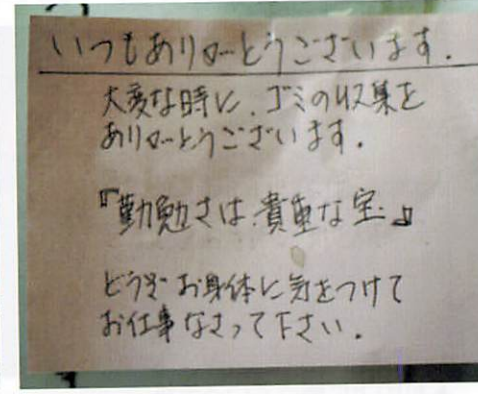 いつもありがとうございます.
大変な時に、ゴミの収集を
ありがとうございます.
『勤勉さは、貴重な宝』
どうぞお身体に気をつけて
お仕事なさって下さい.